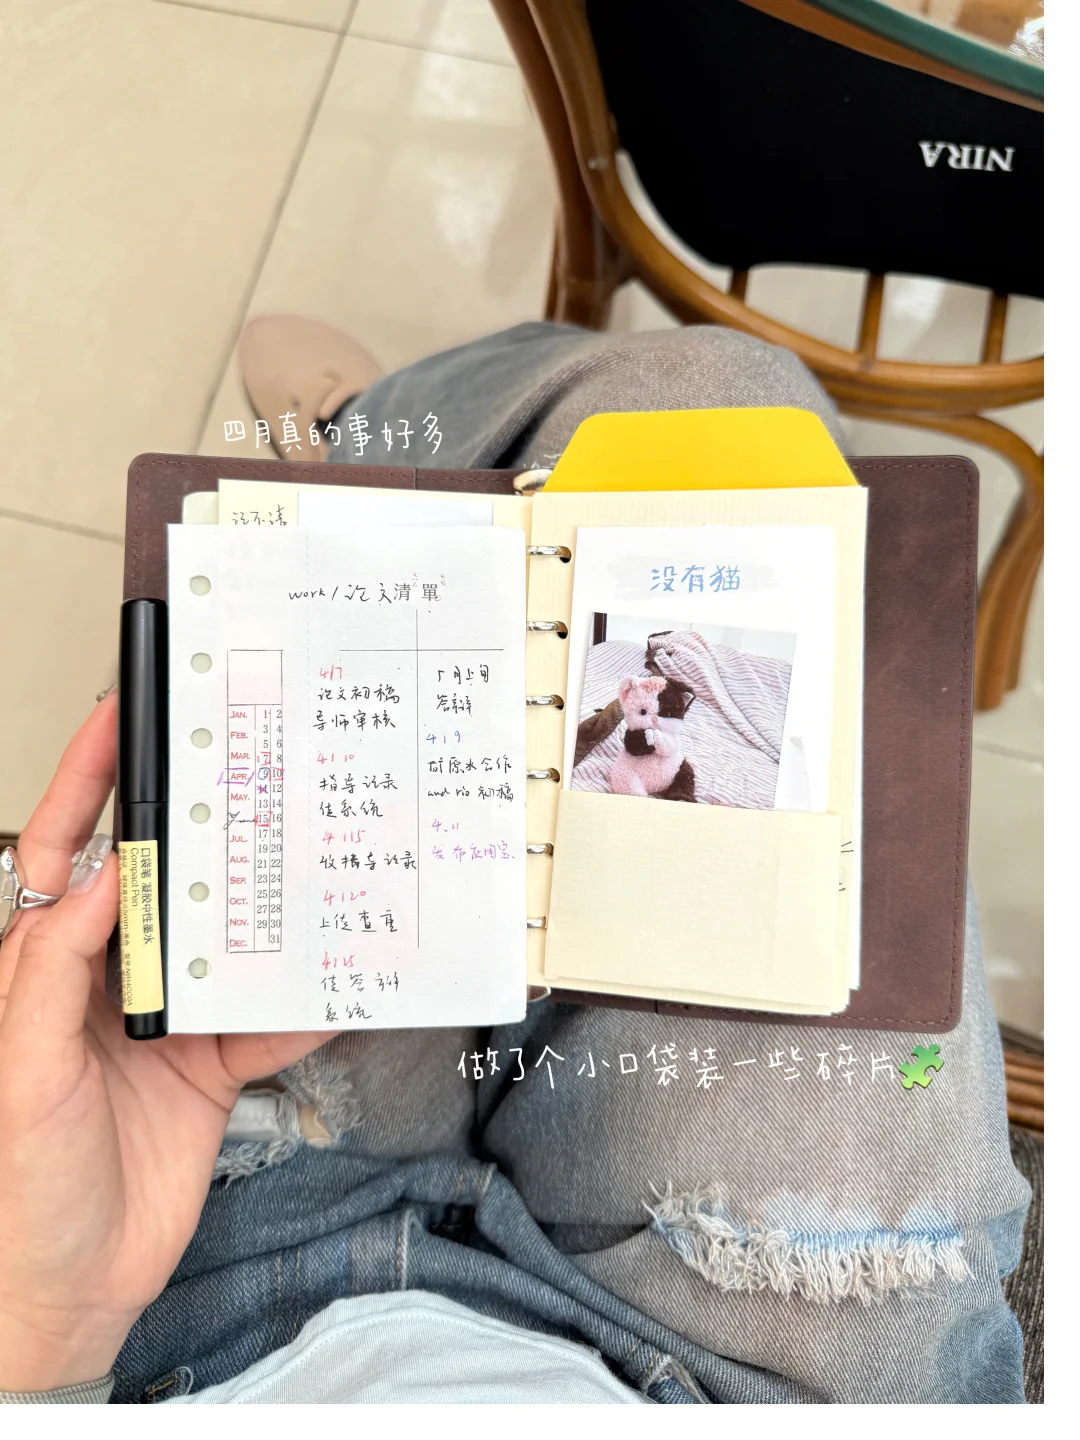 NIRA
四月真的事好多
记不清
work/论文清單
4/7
论文初稿
导师审核
4/10
指导记录
传系统
4/15
收指导记录
4/20
上传查重
4/25
传答辩
系统
5月上旬
答辩
4/9
矿原水合作
and rio 初稿
4.11
发布应用宝
JAN. 1 2
FEB. 3 4
5 6
MAR. 7 8
APR. 9 10
12
MAY. 13 14
15 16
JUL. 17 18
19 20
AUG. 21 22
SEP. 23 24
OCT. 25 26
27 28
NOV. 29 30
DEC. 31
口袋笔 凝胶中性墨水
Compact Pen
没有猫
做了个小口袋装一些碎片